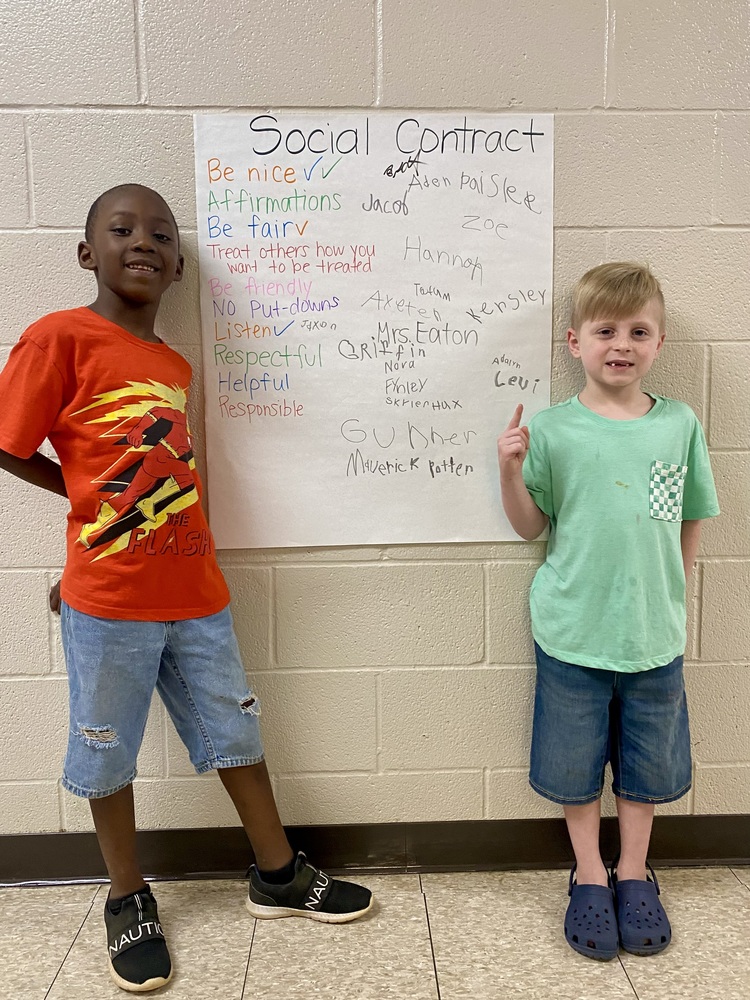 Social Contract
Be nice ✓✓
Affirmations
Be fair ✓
Treat others how you
want to be treated
Be friendly
No Put-downs
Listen ✓
Respectful
Helpful
Responsible
Aden Paislee
Jacob
Zoe
Hannah
Tatum
Axeten
Kensley
Jaxon
Mrs. Eaton
Griffin
Nora
Adalyn
Levi
Finley
Skyler Hax
Gunner
Maverick Potten
THE
FLASH
NAUTIC
NAUTI